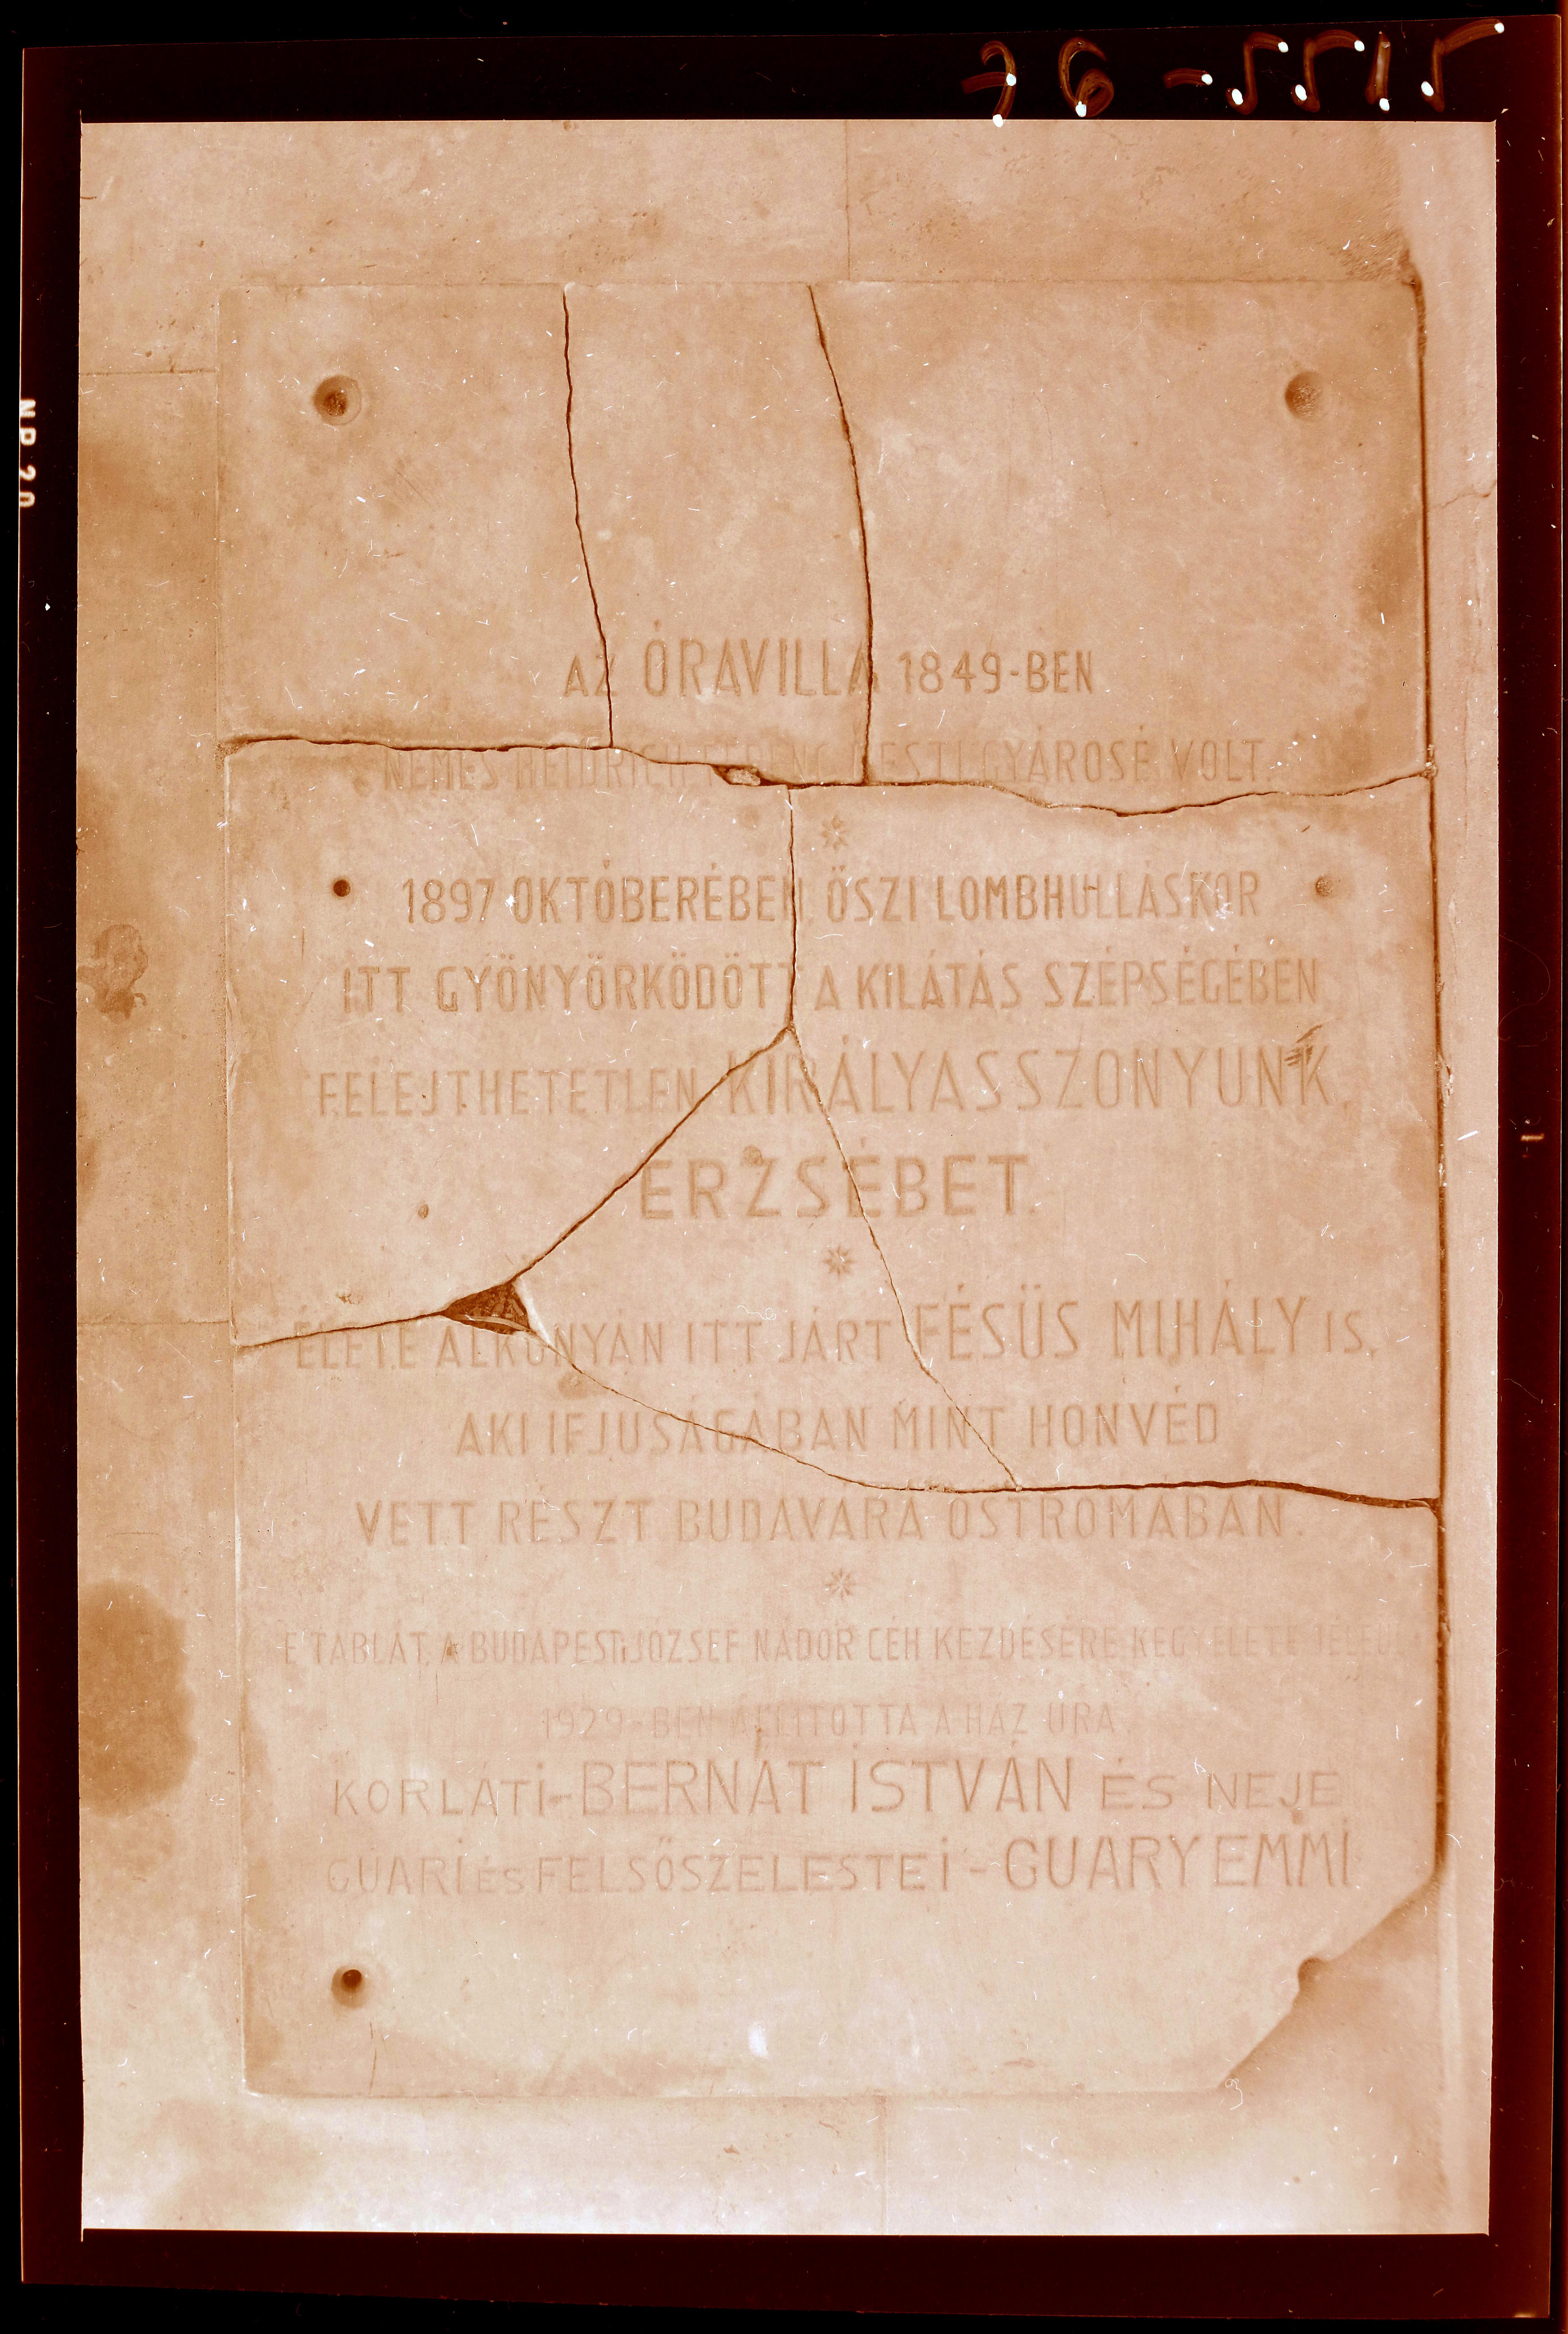 AZ ÓRAVILLA 1849-BEN
NEMES HEIDRICH FERENC PESTI GYÁROSÉ VOLT.
1897 OKTÓBERÉBEN ŐSZI LOMBHULLÁSKOR
ITT GYÖNYÖRKÖDÖTT A KILÁTÁS SZÉPSÉGÉBEN
FELEJTHETETLEN KIRÁLYASSZONYUNK,
ERZSÉBET.
ÉLETE ALKONYÁN ITT JÁRT FÉSÜS MIHÁLY IS,
AKI IFJUSÁGÁBAN MINT HONVÉD
VETT RÉSZT BUDAVÁRA OSTROMÁBAN.
E TÁBLÁT A BUDAPESTI JÓZSEF NÁDOR CÉH KEZDÉSÉRE KEGYELETE JELÉÜL
1929-BEN ÁLLITOTTA A HÁZ URA,
KORLÁTI-BERNÁT ISTVÁN ÉS NEJE
GUARI ÉS FELSŐSZELESTEI - GUARY EMMI
NP20